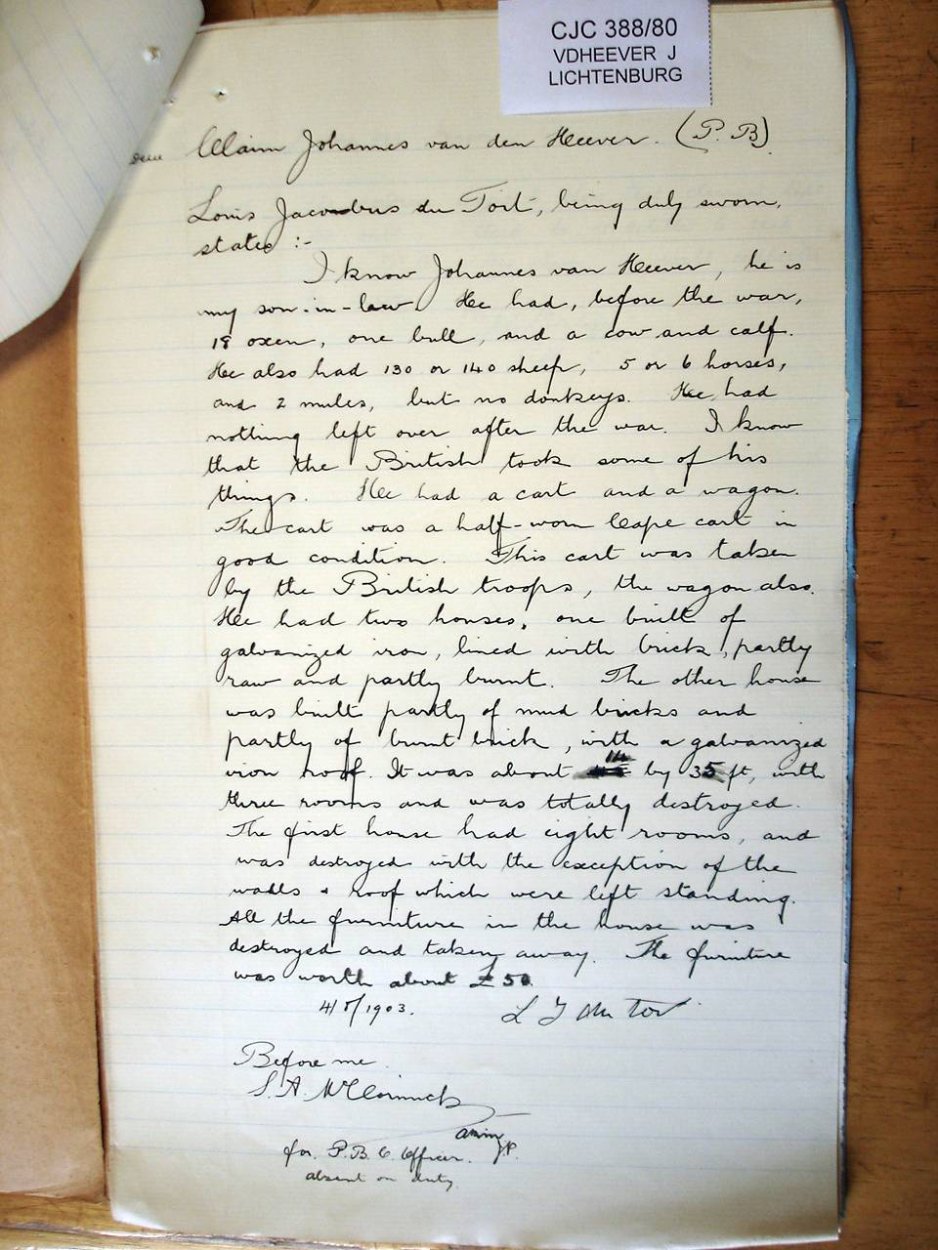 CJC 388/80
VDHEEVER J
LICHTENBURG
Claim Johannes van den Heever. (P. B)
Louis Jacobus du Toit, being duly sworn,
states :-
I know Johannes van Heever, he is
my son-in-law. He had, before the war,
18 oxen, one bull, and a cow and calf.
He also had 130 or 140 sheep, 5 or 6 horses,
and 2 mules, but no donkeys. He had
nothing left over after the war. I know
that the British took some of his
things. He had a cart and a wagon.
The cart was a half-worn Cape cart in
good condition. This cart was taken
by the British troops, the wagon also.
He had two houses, one built of
galvanized iron, lined with brick, partly
raw and partly burnt. The other house
was built partly of mud bricks and
partly of burnt brick, with a galvanized
iron roof. It was about 14 by 35 ft, with
three rooms and was totally destroyed.
The first house had eight rooms, and
was destroyed with the exception of the
walls & roof which were left standing.
All the furniture in the house was
destroyed and taken away. The furniture
was worth about £50
4/5/1903. L J du toit
Before me
S. A. McCormick
for P. B. C. Officer. JP.
absent on duty.